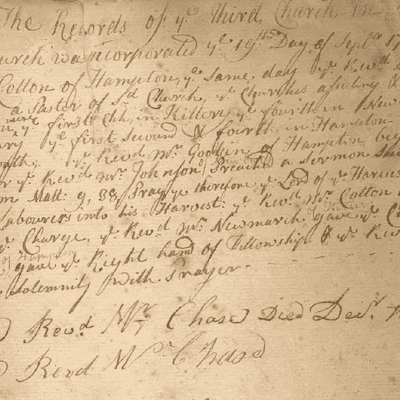 The Records of ye Third Church in
Church was incorporated ye 19th Day of Septr 17
Cotton of Hampton, ye same day ye Revd
a Paster of Sd Church, ye Churches assisting
were first Chh. in Kittery ye fourth in New
ye first second & fourth in Hampton
ye Revd Mr Gookin of Hampton
ye Revd Mr Johnson Preached a Sermon
Matt: 9, 38 Pray ye therefore ye Lord of ye Harvest
Labourers into his Harvest: ye Revd Mr Cotton
ye Charge, ye Revd Mr Newmarch gave ye
of Hampton
gave ye Right hand of Fellowship & ye Revd
Solemnity with Prayer.
Revd Mr Chase Died Decr
Revd Mr Chase